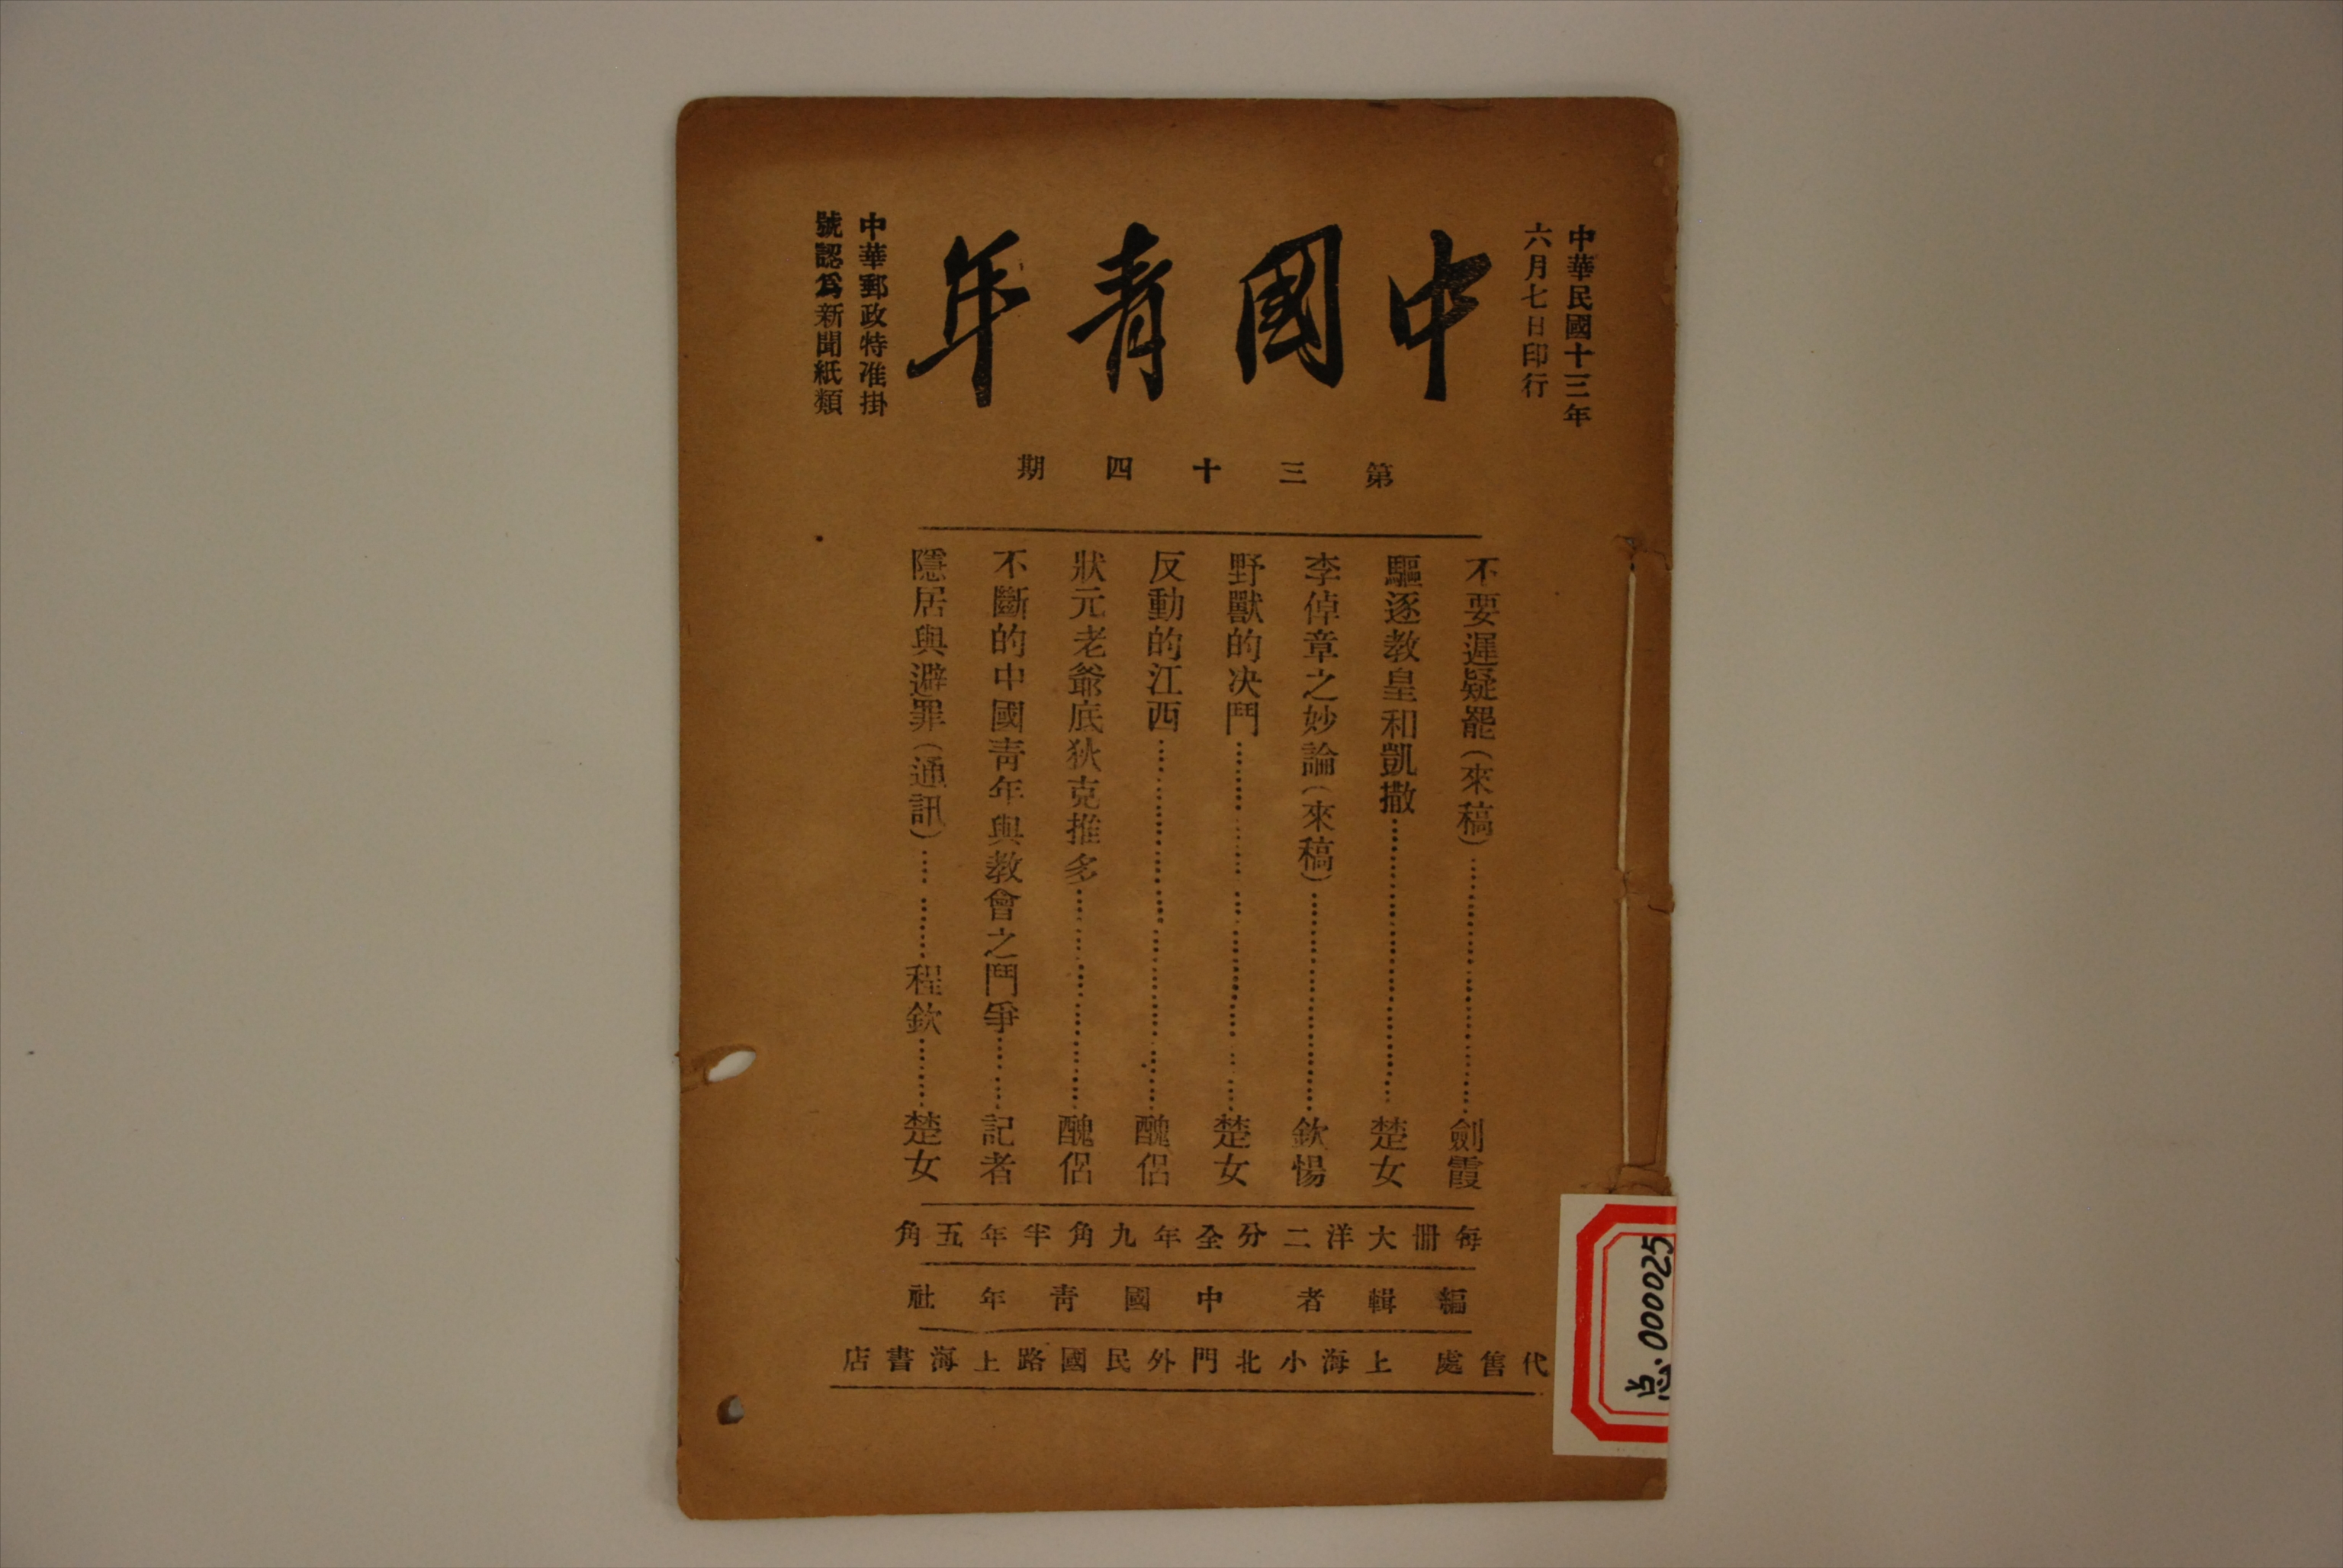 中華民國十三年
六月七日印行
中國青年
中華郵政特准掛
號認爲新聞紙類
第三十四期
不要遲疑罷（來稿）……劍霞
驅逐教皇和凱撒……楚女
李倬章之妙論（來稿）……欽惕
野獸的决鬥……楚女
反動的江西……醜侶
狀元老爺底狄克推多……醜侶
不斷的中國青年與教會之鬥爭……記者
隱居與避罪（通訊）……程欽……楚女
每冊大洋二分全年九角半年五角
編輯者 中國青年社
代售處 上海小北門外民國路上海書店
总.000025